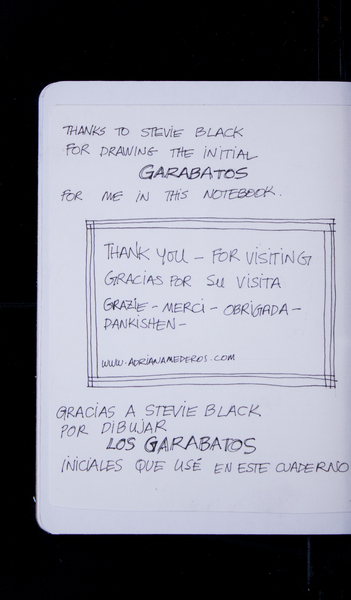 THANKS TO STEVIE BLACK
FOR DRAWING THE INITIAL
GARABATOS
FOR ME IN THIS NOTEBOOK.
THANK YOU – FOR VISITING
GRACIAS POR SU VISITA
GRAZIE – MERCI – OBRIGADA –
DANKISHEN –
WWW.ADRIANAMEDEROS.COM
GRACIAS A STEVIE BLACK
POR DIBUJAR
LOS GARABATOS
INICIALES QUE USÉ EN ESTE CUADERNO